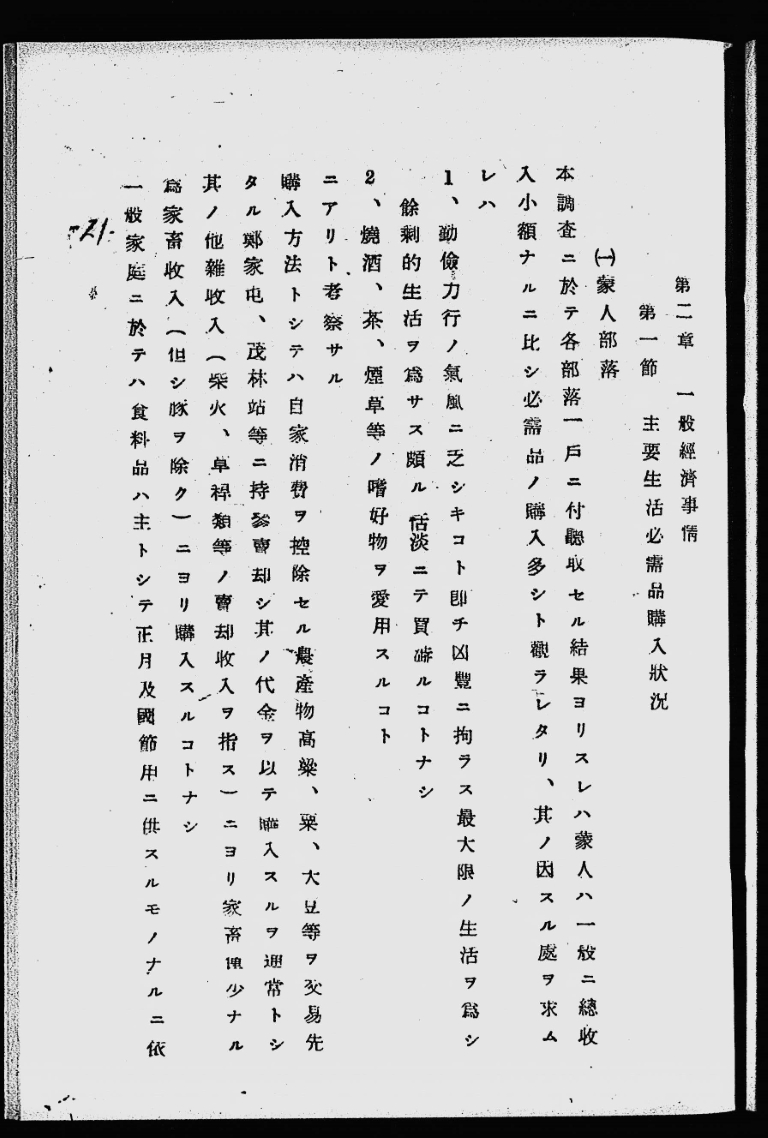 第二章　一般經濟事情
第一節　主要生活必需品購入狀況
㈠蒙人部落
本調査ニ於テ各部落一戶ニ付聽取セル結果ヨリスレハ蒙人ハ一般ニ總收
入小額ナルニ比シ必需品ノ購入多シト觀ラレタリ、其ノ因スル處ヲ求ム
レハ
1、勤儉力行ノ氣風ニ乏シキコト卽チ凶豐ニ拘ラス最大限ノ生活ヲ爲シ
餘剩的生活ヲ爲サス頗ル恬淡ニテ買惜ルコトナシ
2、燒酒、茶、煙草等ノ嗜好物ヲ愛用スルコト
ニアリト考察サル
購入方法トシテハ自家消費ヲ控除セル農產物高粱、粟、大豆等ヲ交易先
タル鄭家屯、茂林站等ニ持參賣却シ其ノ代金ヲ以テ購入スルヲ通常トシ
其ノ他雜收入（柴火、草稈類等ノ賣却收入ヲ指ス）ニヨリ家畜僅少ナル
爲家畜收入（但シ豚ヲ除ク）ニヨリ購入スルコトナシ
一般家庭ニ於テハ食料品ハ主トシテ正月及國節用ニ供スルモノナルニ依
-21-